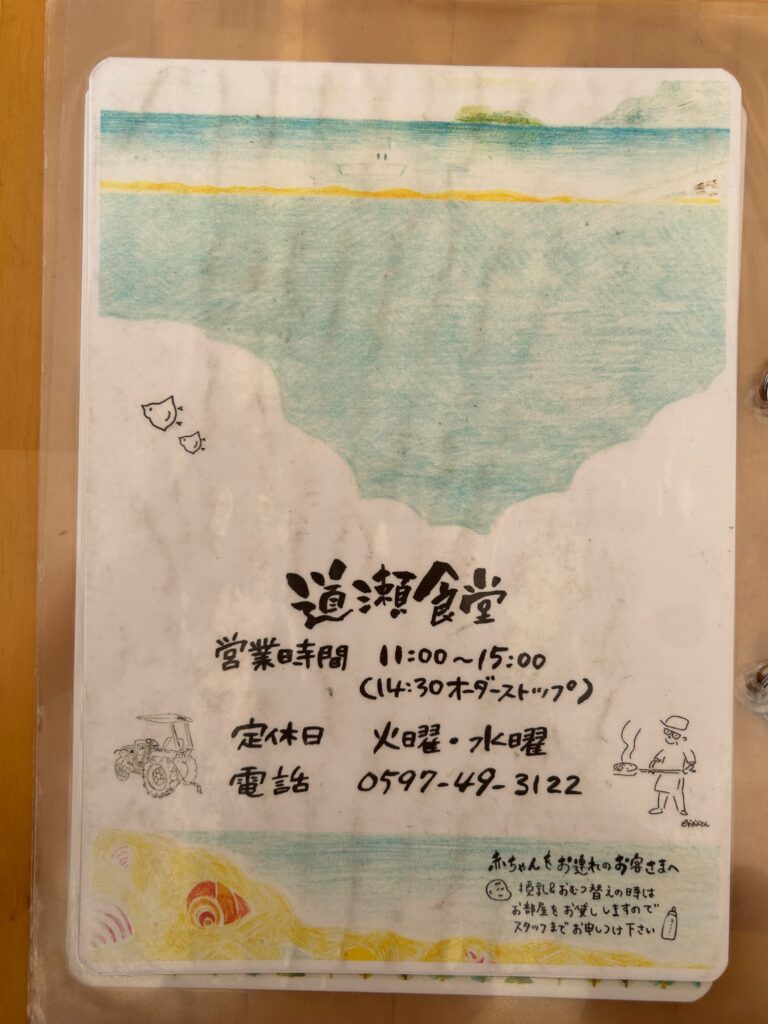 道瀬食堂
営業時間 11:00～15:00
(14:30オーダーストップ)
定休日 火曜・水曜
電話 0597-49-3122
赤ちゃんをお連れのお客さまへ
授乳&おむつ替えの時は
お部屋をお貸ししますので
スタッフまでお申しつけ下さい